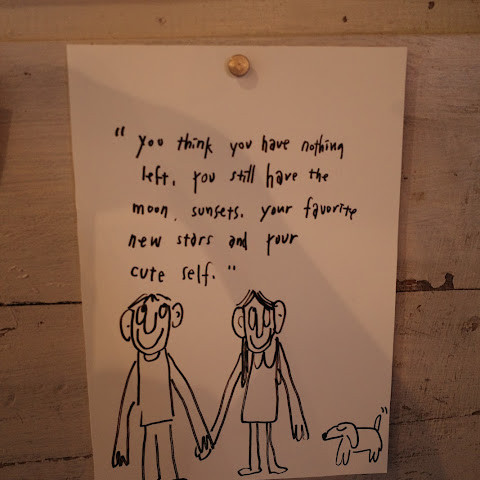 "you think you have nothing
left. you still have the
moon, sunsets, your favorite
new stars and your
cute self."